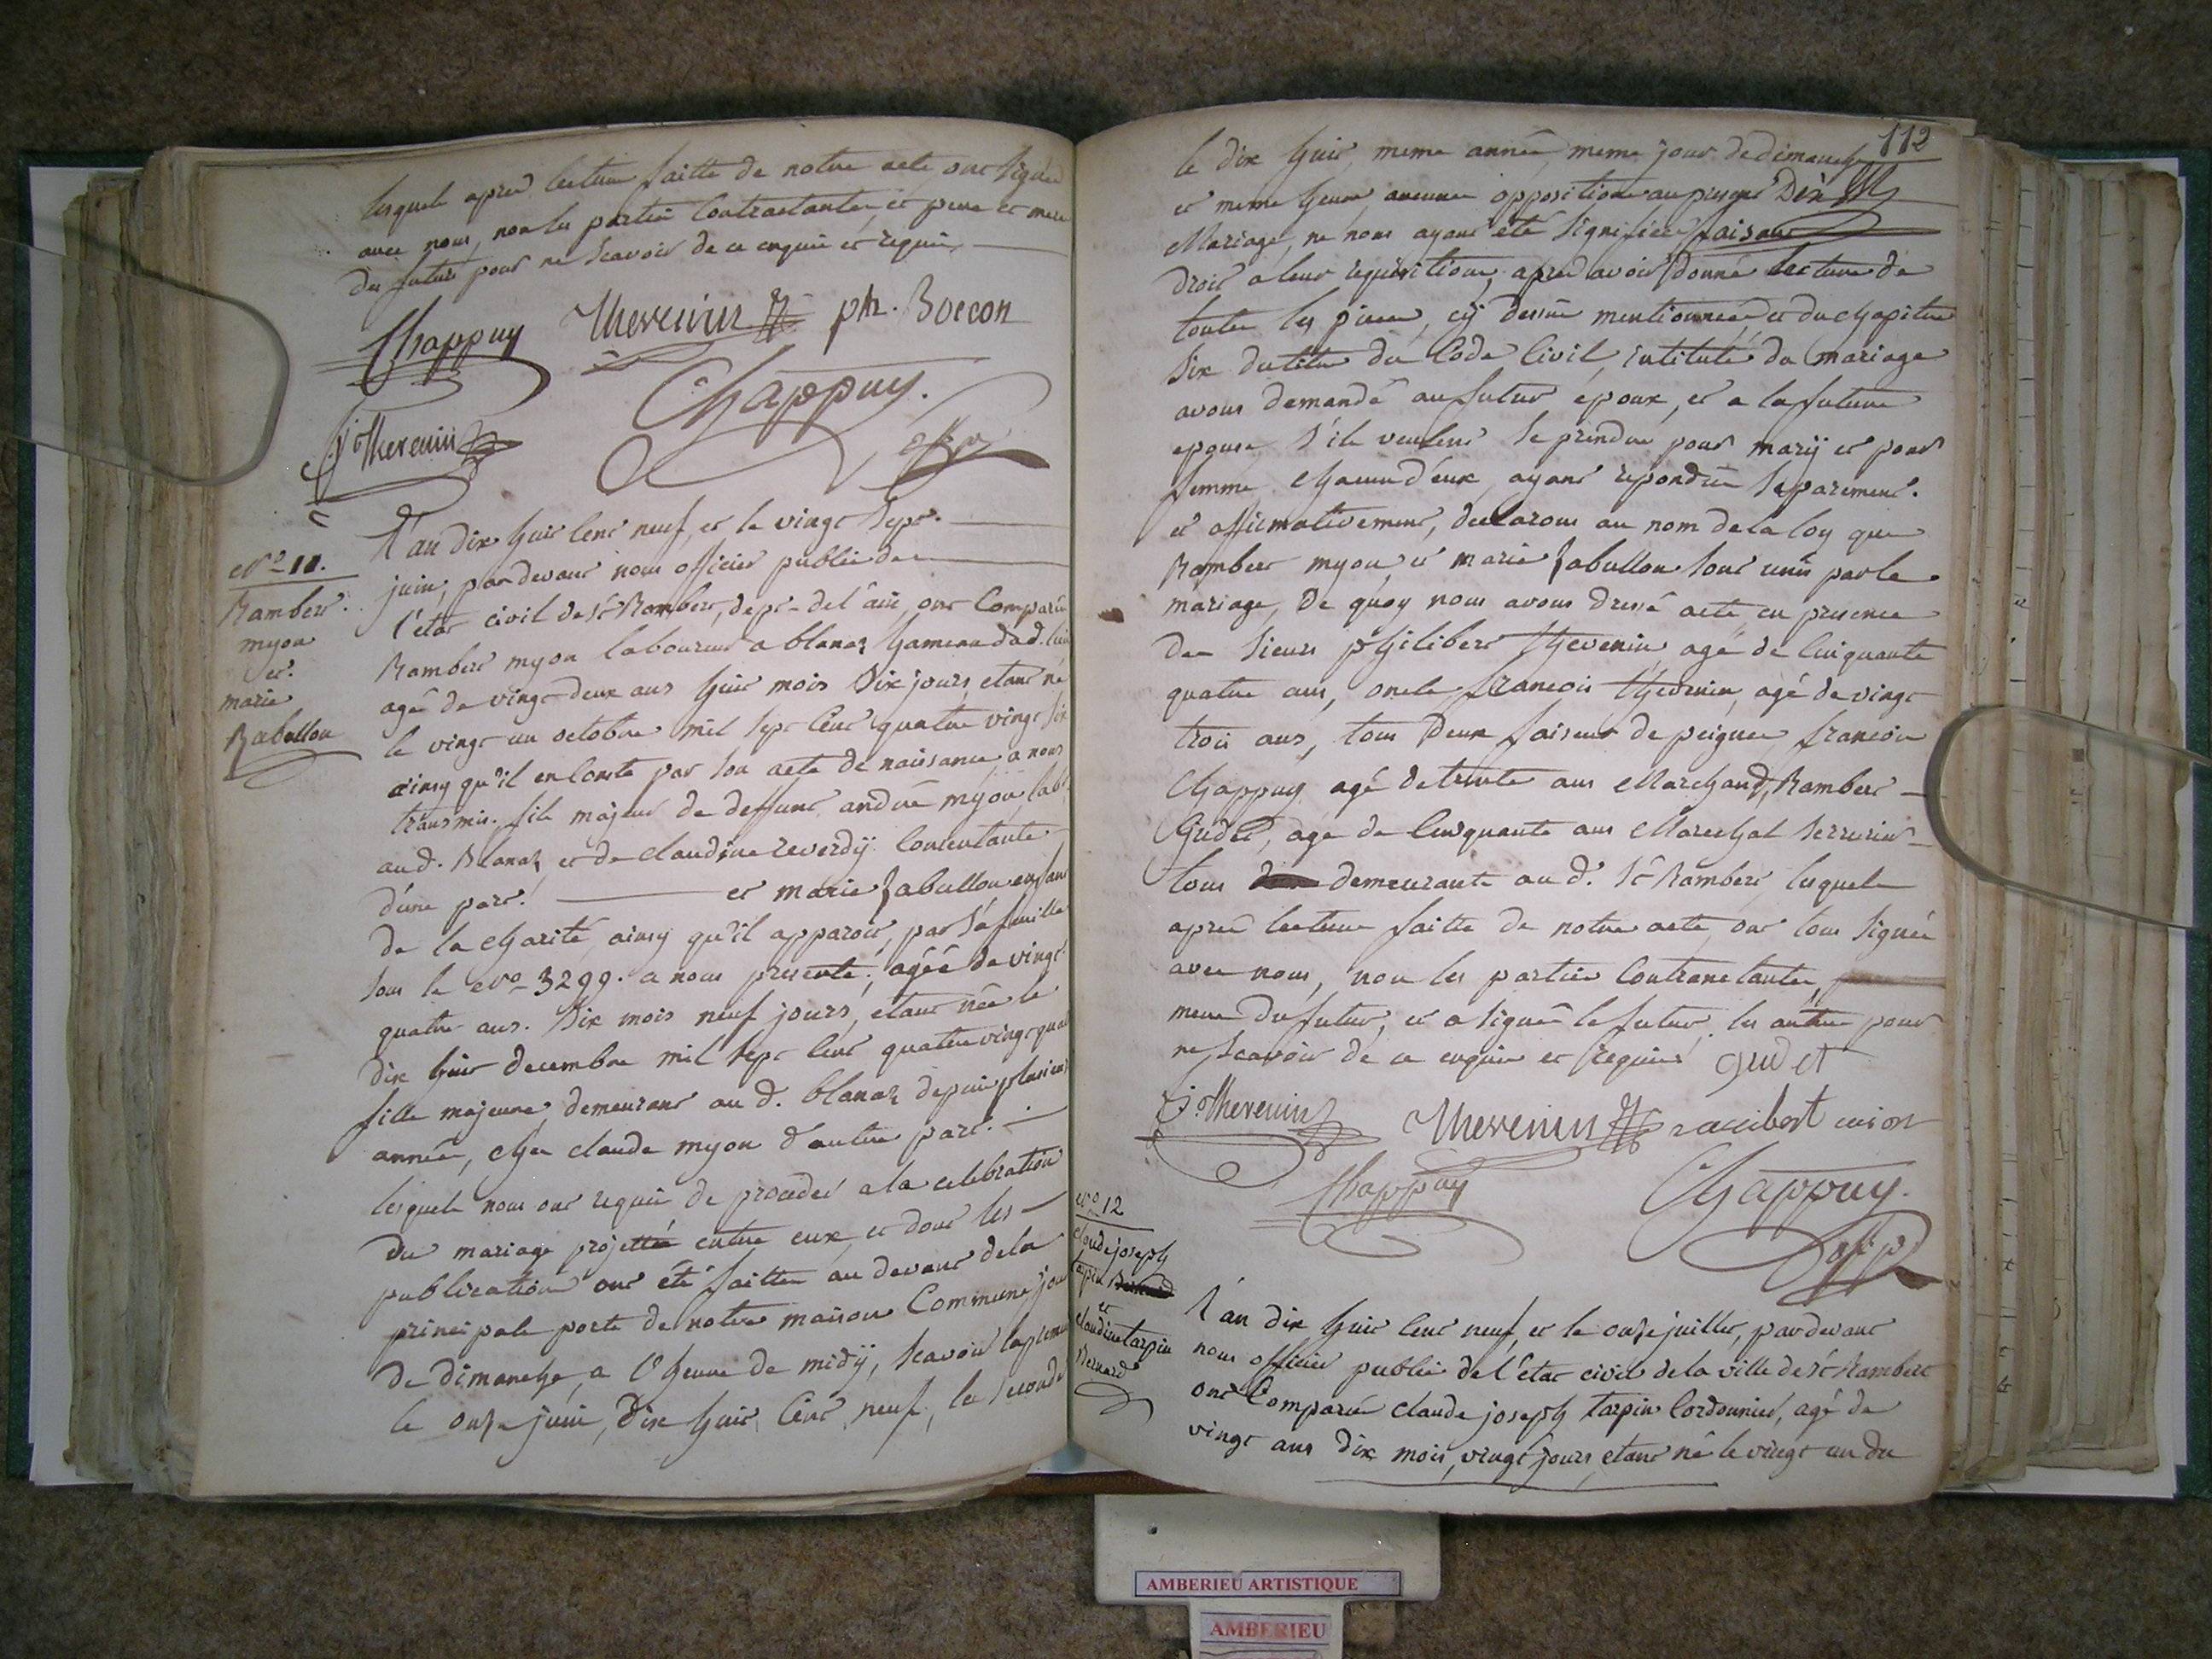 lesquels apres lecture faitte de notre acte ont signés
avec nous, non les parties Contractantes, et pere et mere
du futur pour ne scavoir de ce enquis et requis,
Chappuy Thevenin ph. Boccon
Chappuy.
f. Thevenin
N.º 11.
Rambert
myon
et
marie
Zabullon
L'an dix huit cent neuf, et le vingt sept
juin, par devant nous officier public de
l'état civil de St Rambert, dept de l'ain, ont Comparus
Rambert myon laboureur a blanaz hameau dud. lieu
agé de vingt deux ans huit mois six jours, etant né
le vingt un octobre mil sept cent quatre vingt six
ainsy qu'il en Conste par son acte de naissance a nous
transmis. fils majeur de deffunt andré myon, lab.
aud. Blanaz et de claudine reverdÿ Consentante
d'une part. et marie Zabullon enfant
de la charité, ainsy qu'il apparoit, par sa feuille
sous le Nº 3299. a nous presenté, agéé de vingt
quatre ans. six mois neuf jours, etant née le
dix huit decembre mil sept cent quatre vingt quat
fille majeure, demeurant au d. blanaz depuis plusieurs
années, chez claude myon d'autre part.
lesquels nous ont requis de proceder a la celebration
du mariage projetté entre eux, et dont les
publications ont été faittes au devant de la
principale porte de notre maison Commune, jour
de dimanche, a l'heure de midÿ, scavoir la premiere
le onze juin, dix huit Cent neuf, la seconde
112
le dix huit, meme année, meme jour de dimanche
et meme heure, aucune opposition au present Dit
Mariage, ne nous ayant été signifiée, faisant
droit a leur requisition, apres avoir donné lecture de
toutes les pieces, cÿ dessus mentionnées, et du chapitre
six du titre du Code Civil, intitulé du mariage
avons demandé au futur epoux, et a la future
epouse, s'ils veulent se prendre pour marÿ et pour
femme, chacun d'eux, ayant repondus separement.
et affirmativement, declarons au nom de la loy que
Rambert myon, et marie Zabullon sont unis par le
mariage, De quoy nous avons dressé acte, en presence
des sieurs philibert Thevenin, agé de cinquante
quatre ans, oncle francois Thevenin, agé de vingt
trois ans, tous deux faiseurs de peignes, francois
Chappuy agé de trente ans Marchand, Rambert
Gudet, agé de Cinquante ans Marechal serrurier
tous demeurants au d. St Rambert, lesquels
apres lecture faitte de notre acte, ont tous signés
avec nous, non les parties Contractantes,
mere du futur, et a signé le futur, les autres pour
ne scavoir de ce enquis et requis gudet
f. Thevenin Thevenin
Chappuy Chappuy.
Nº 12
Claude joseph
tarpin
et
claudine tarpin
Bernard
L'an dix huit cent neuf, et le onze juillet, par devant
nous officier public de l'état civil de la ville de St Rambert
ont Comparus claude joseph tarpin Cordonnier, agé de
vingt ans dix mois, vingt jours, etant né le vingt un du
AMBERIEU ARTISTIQUE
AMBERIEU